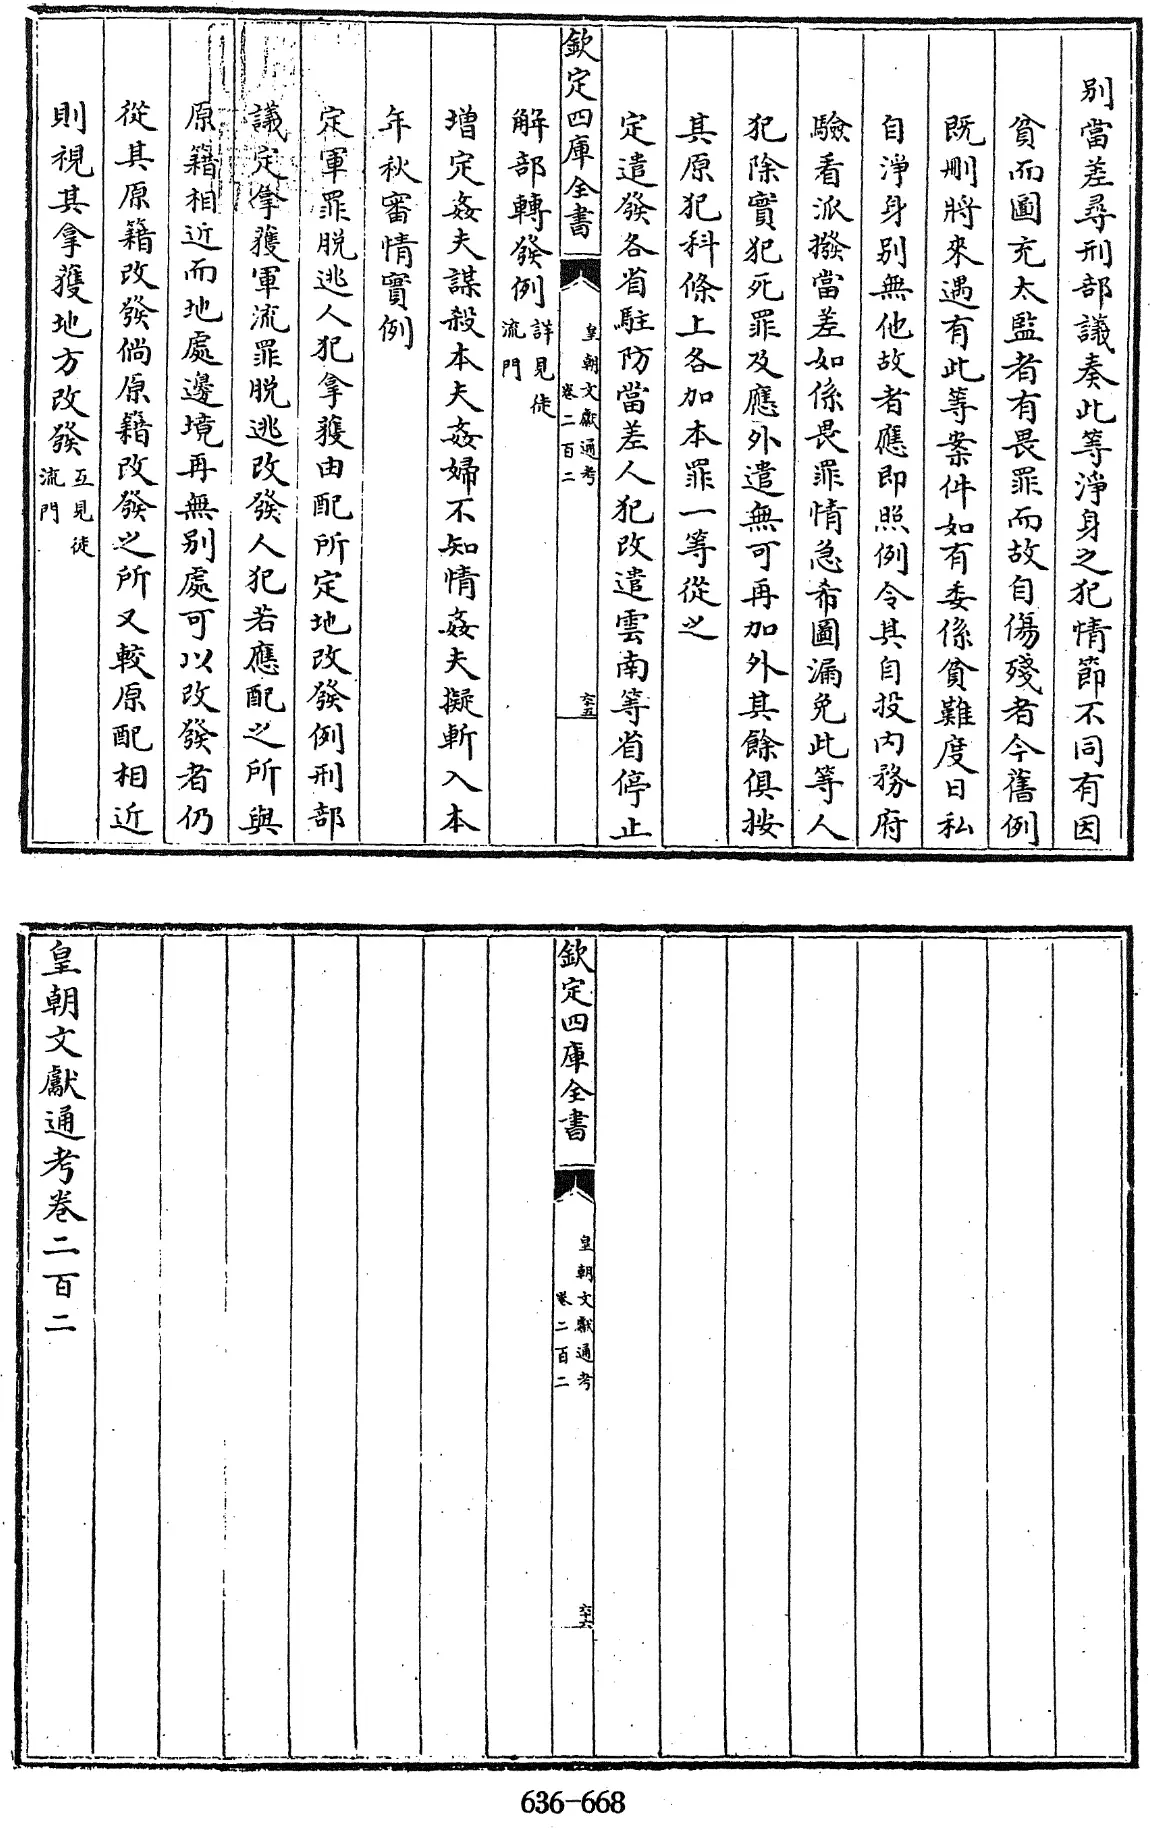 別當差尋刑部議奏此等淨身之犯情節不同有因
貧而圖充太監者有畏罪而故自傷殘者今舊例
既刪將來遇有此等案件如有委係貧難度日私
自淨身別無他故者應即照例令其自投內務府
驗看派撥當差如係畏罪情急希圖漏免此等人
犯除實犯死罪及應外遣無可再加外其餘俱按
其原犯科條上各加本罪一等從之
定遣發各省駐防當差人犯改遣雲南等省停止
欽定四庫全書
皇朝文獻通考
卷二百二
六十五
解部轉發例詳見徒
流門
增定姦夫謀殺本夫姦婦不知情姦夫擬斬入本
年秋審情實例
定軍罪脫逃人犯拿獲由配所定地改發例刑部
議定拿獲軍流罪脫逃改發人犯若應配之所與
原籍相近而地處邊境再無別處可以改發者仍
從其原籍改發倘原籍改發之所又較原配相近
則視其拿獲地方改發互見徒
流門
欽定四庫全書
皇朝文獻通考
卷二百二
六十六
皇朝文獻通考卷二百二
636-668